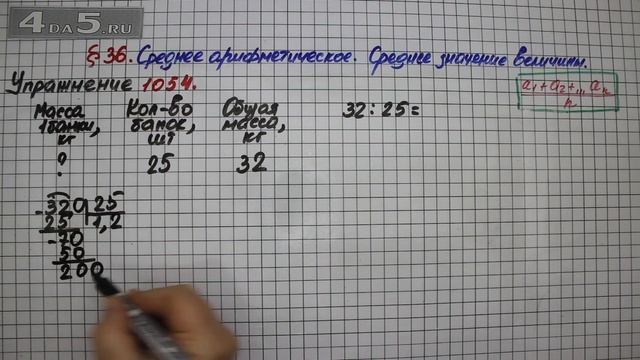 4DA5.RU
§ 36. Среднее арифметическое. Среднее значение величины.
Упражнение 1054.
a₁+a₂+...aₙ
n
Масса Кол-во Общая
1банки, банок, масса,
кг шт кг
? 25 32
32:25=
-320 25
25 1,2
-70
50
200